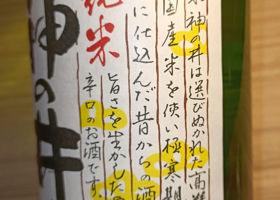 神の井は選びぬかれた高
国産米を使い極寒期
に仕込んだ昔からの酒
旨さを生かした
辛口のお酒です。
純米
神の井